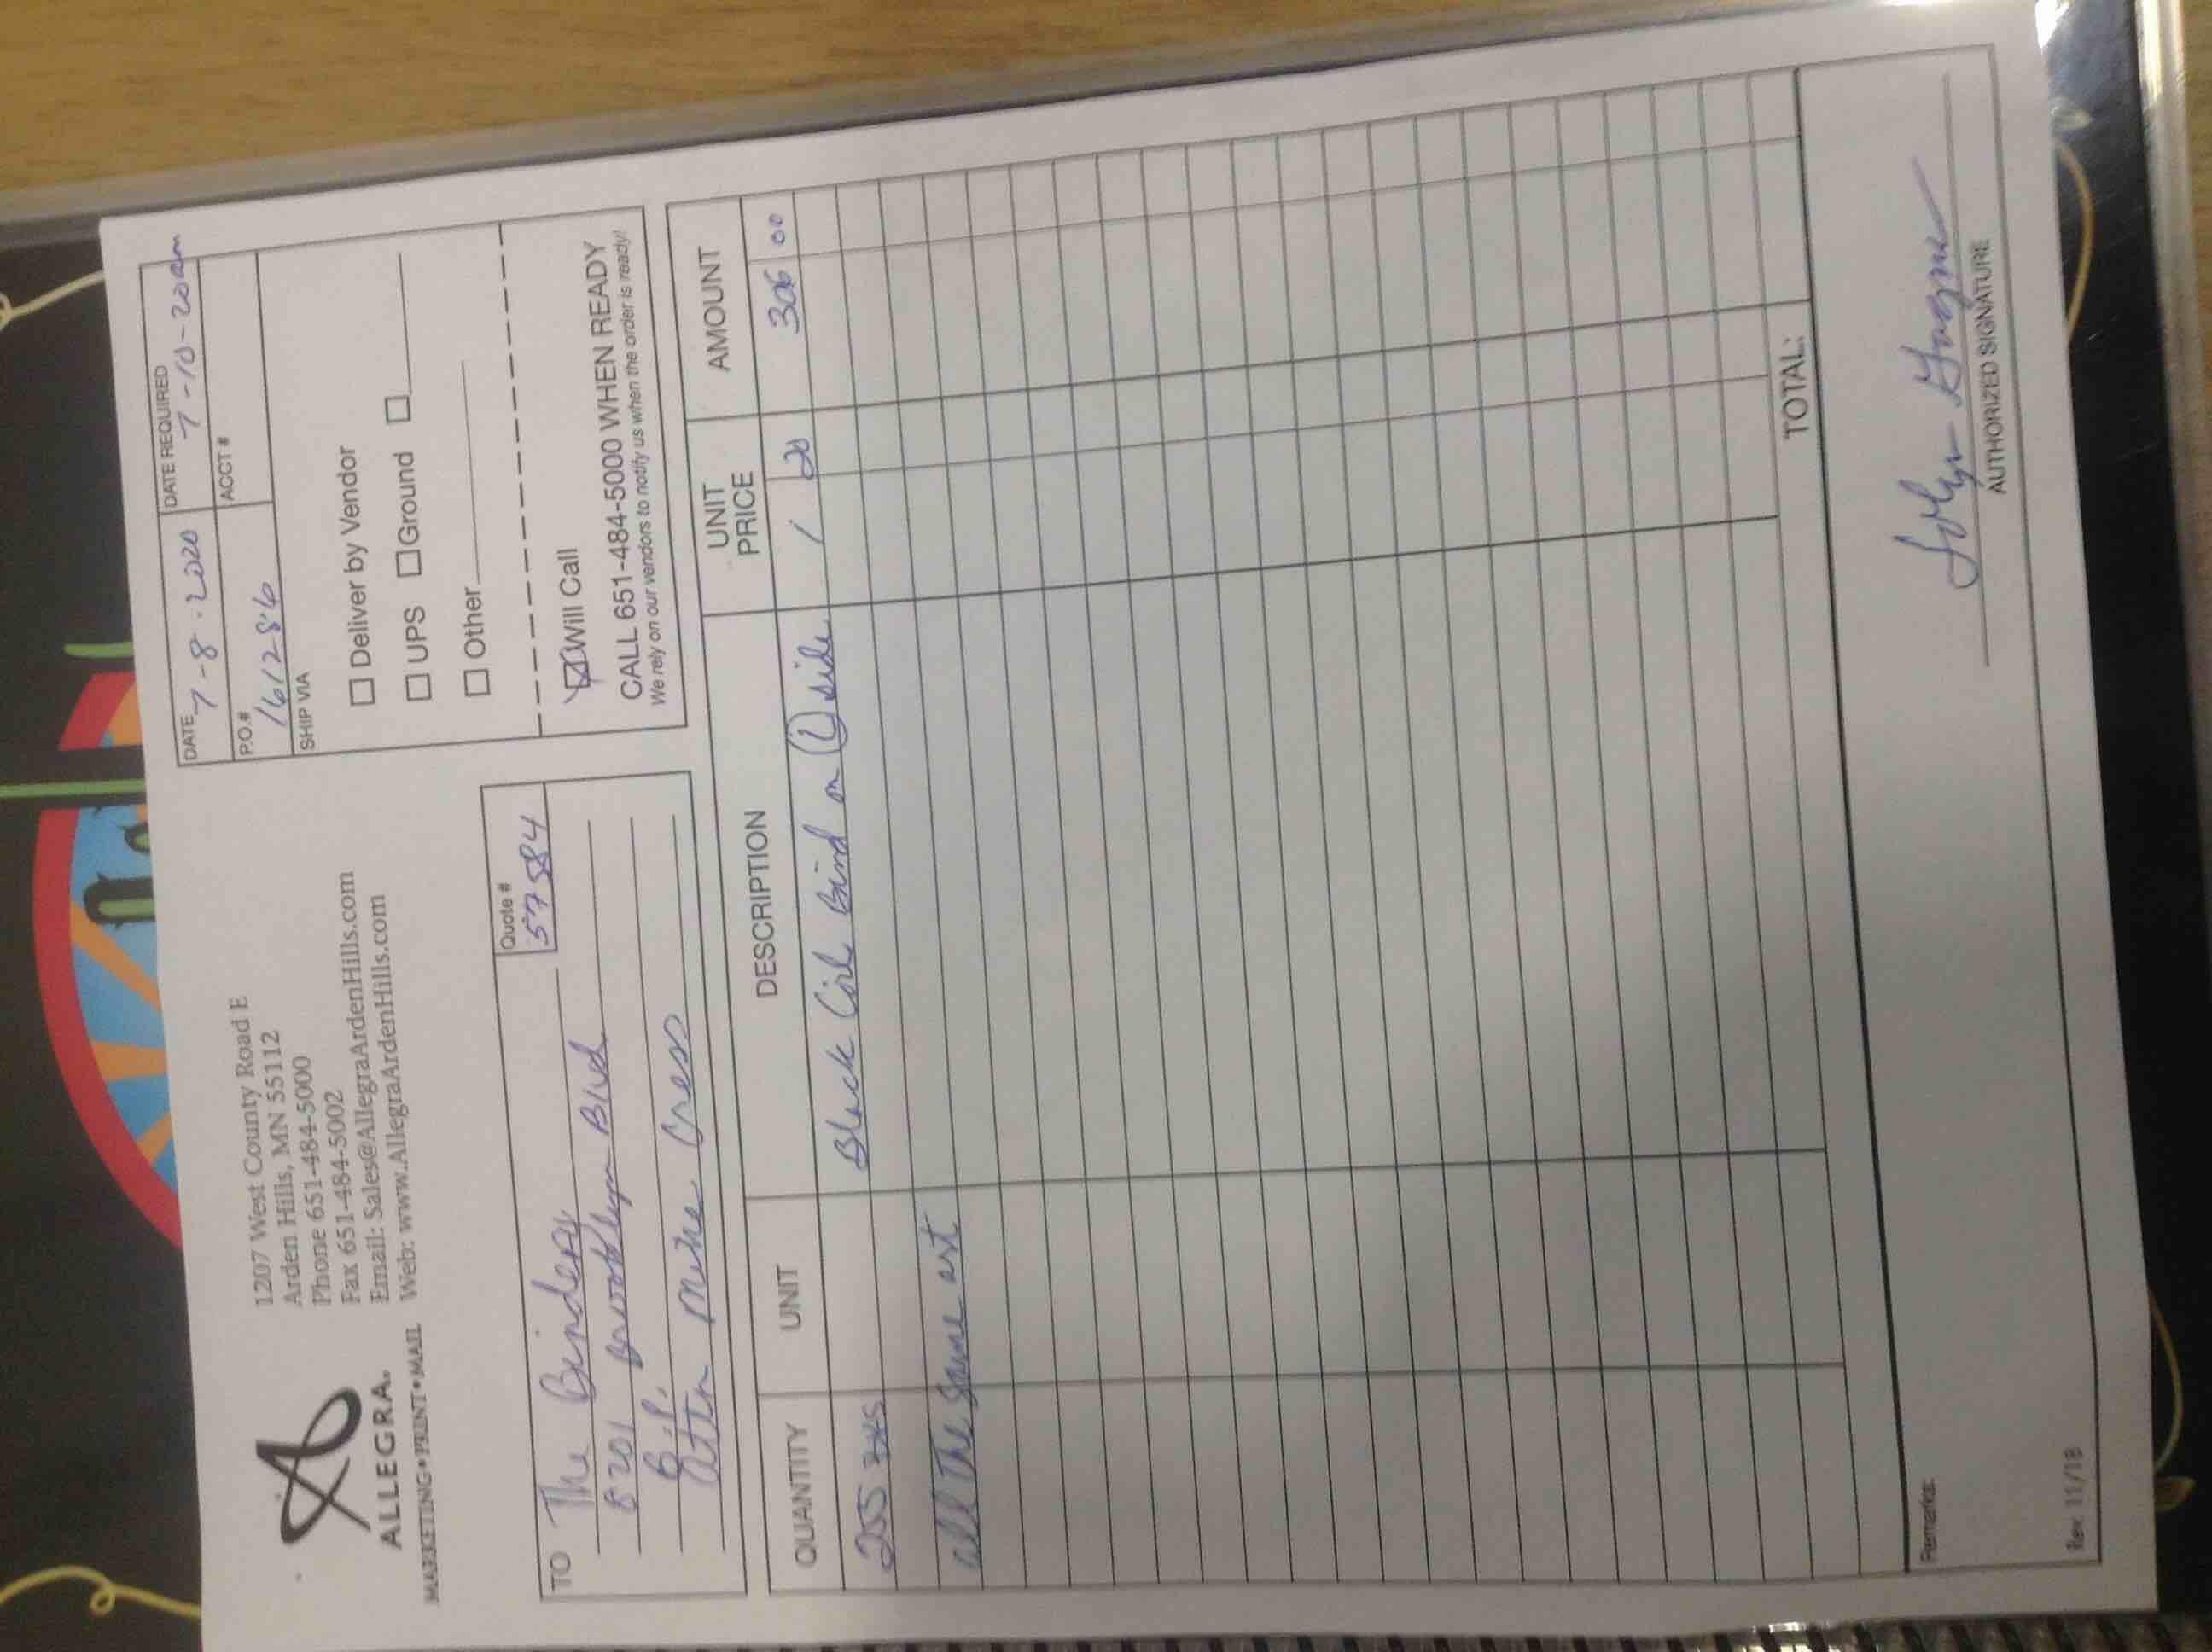 ALLEGRA.
MARKETING•PRINT•MAIL
1207 West County Road E
Arden Hills, MN 55112
Phone 651-484-5000
Fax 651-484-5002
Email: Sales@AllegraArdenHills.com
Web: www.AllegraArdenHills.com
DATE 7-8-2020
DATE REQUIRED 7-10-20am
P.O.# 161286
ACCT #
SHIP VIA
Deliver by Vendor
UPS Ground
Other
Will Call
CALL 651-484-5000 WHEN READY
We rely on our vendors to notify us when the order is ready!
Quote # 57584
TO The Bindery
8201 Brooklyn Blvd
B.P.
Attn Mike Cress
QUANTITY UNIT DESCRIPTION UNIT PRICE AMOUNT
255 Black Coil Bind on (1) side 1 20 306 00
all the same art
TOTAL:
Remarks:
AUTHORIZED SIGNATURE
Rev. 11/18